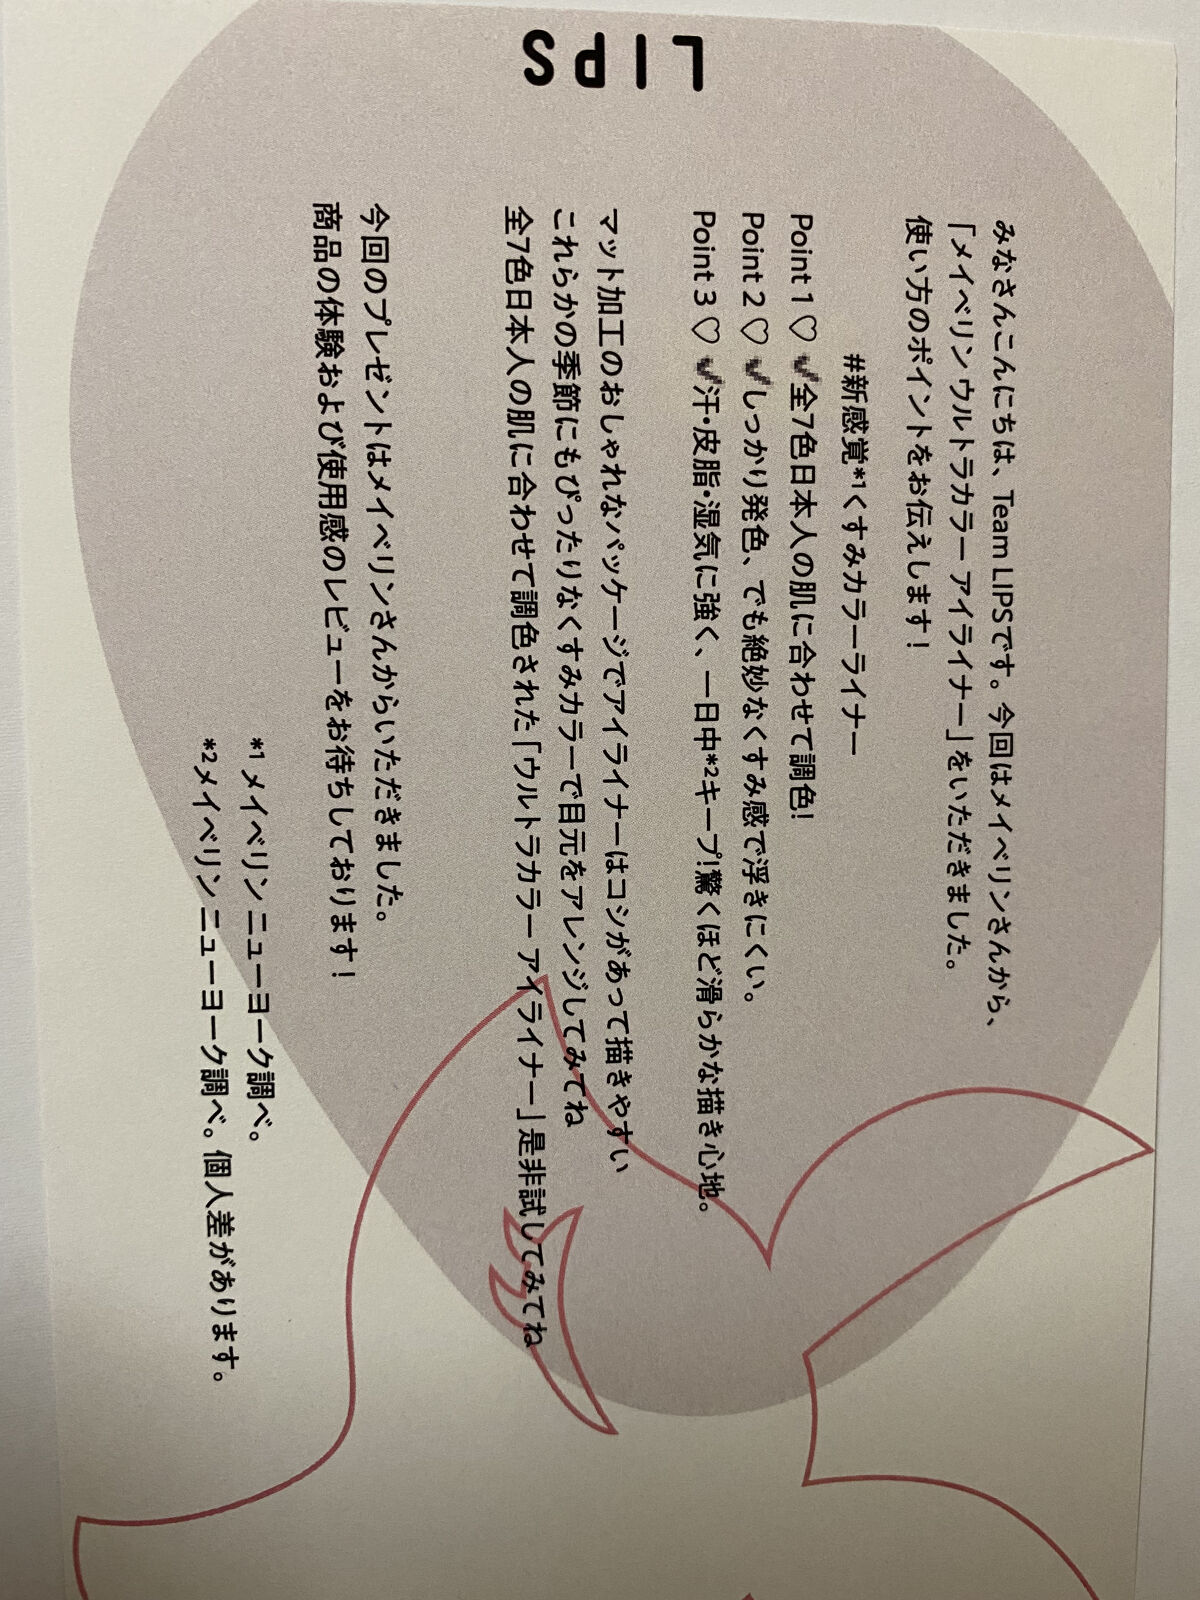 LIPS
みなさんこんにちは、Team LIPSです。今回はメイベリンさんから、
「メイベリン ウルトラカラー アイライナー」をいただきました。
使い方のポイントをお伝えします！
#新感覚*1くすみカラーライナー
Point 1 ♡ ✔全7色日本人の肌に合わせて調色!
Point 2 ♡ ✔しっかり発色、でも絶妙なくすみ感で浮きにくい。
Point 3 ♡ ✔汗・皮脂・湿気に強く、一日中*2キープ!驚くほど滑らかな描き心地。
マット加工のおしゃれなパッケージでアイライナーはコシがあって描きやすい
これらかの季節にもぴったりなくすみカラーで目元をアレンジしてみてね
全7色日本人の肌に合わせて調色された「ウルトラカラー アイライナー」是非試してみてね
今回のプレゼントはメイベリンさんからいただきました。
商品の体験および使用感のレビューをお待ちしております！
*1 メイベリン ニューヨーク調べ。
*2 メイベリン ニューヨーク調べ。個人差があります。